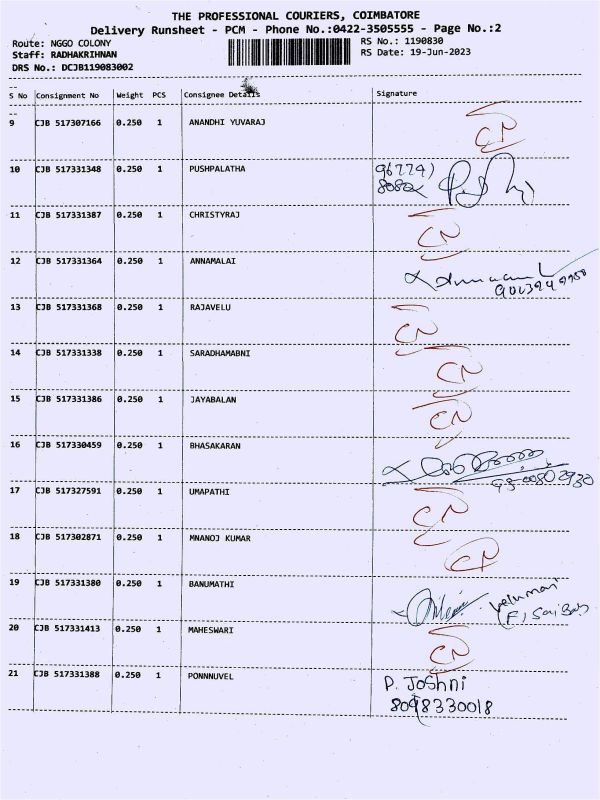 THE PROFESSIONAL COURIERS, COIMBATORE
Delivery Runsheet - PCM - Phone No.:0422-3505555 - Page No.:2
Route: NGGO COLONY
RS No.: 1190830
Staff: RADHAKRIHNAN
RS Date: 19-Jun-2023
DRS No.: DCJB119083002
S No Consignment No Weight PCS Consignee Details Signature
9 CJB 517307166 0.250 1 ANANDHI YUVARAJ CN
10 CJB 517331348 0.250 1 PUSHPALATHA
11 CJB 517331387 0.250 1 CHRISTYRAJ CN
12 CJB 517331364 0.250 1 ANNAMALAI
13 CJB 517331368 0.250 1 RAJAVELU CN
14 CJB 517331338 0.250 1 SARADHAMABNI CN
15 CJB 517331386 0.250 1 JAYABALAN CN
16 CJB 517330459 0.250 1 BHASAKARAN
17 CJB 517327591 0.250 1 UMAPATHI CN
18 CJB 517302871 0.250 1 MNANOJ KUMAR CN
19 CJB 517331380 0.250 1 BANUMATHI
20 CJB 517331413 0.250 1 MAHESWARI CN
21 CJB 517331388 0.250 1 PONNNUVEL P. JoShni
8098330018